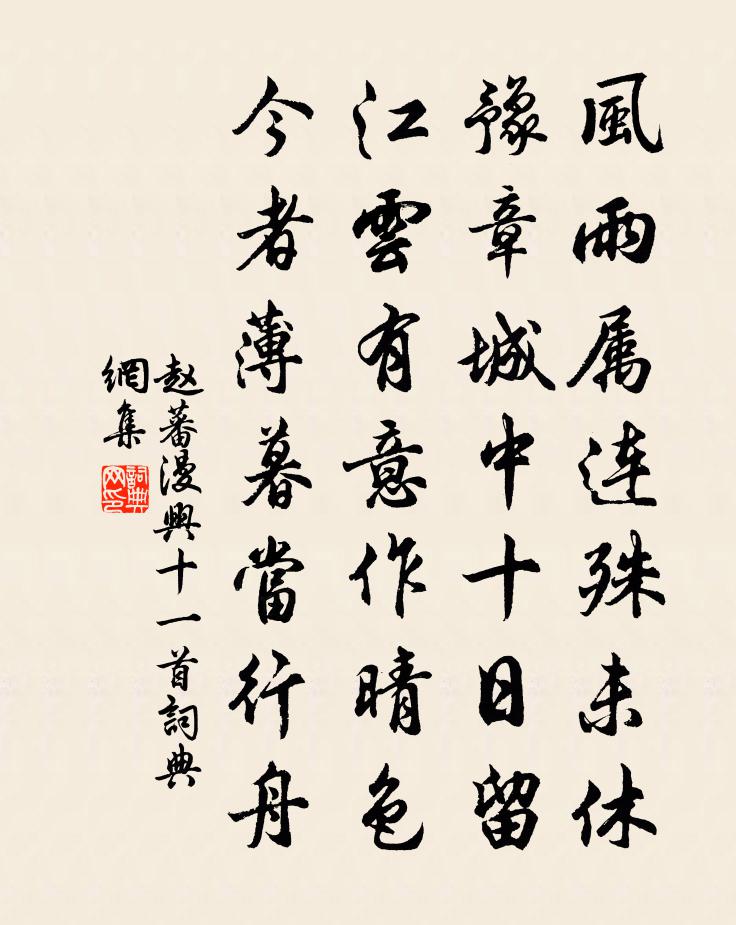 風雨属连殊未休
豫章城中十日留
江雲有意作晴色
今者薄暮當行舟
赵蕃漫興十一首詞典
網集
詞典
网印